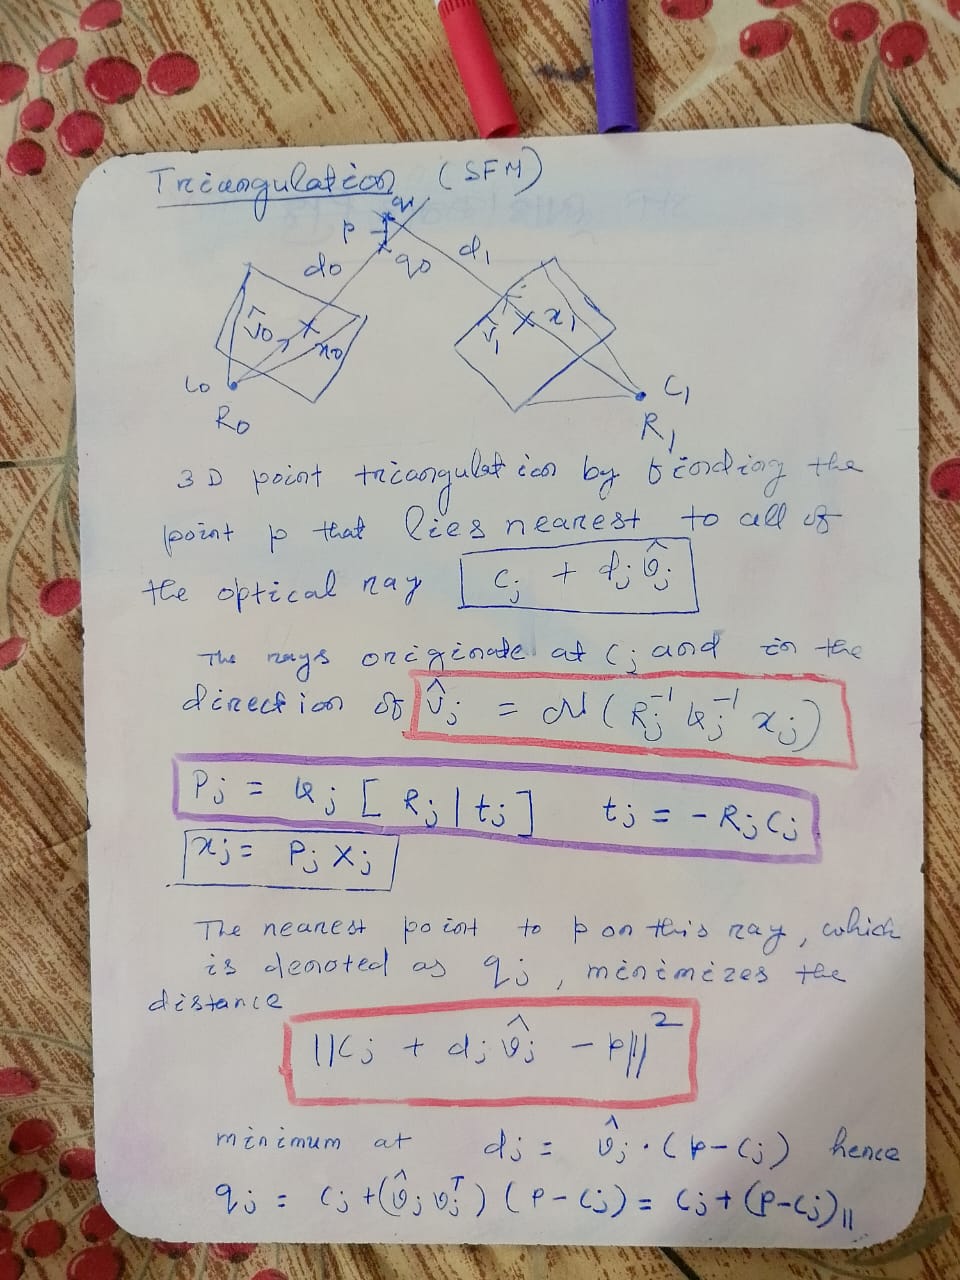 Triangulation (SFM)
q1
p
d0 q0 d1
v̂0 x0 v̂1 x1
c0 C1
R0 R1
3D point triangulation by finding the
point p that lies nearest to all of
the optical ray cj + dj v̂j
The rays originate at cj and in the
direction of v̂j = N(Rj⁻¹ Kj⁻¹ xj)
Pj = Kj [Rj | tj] tj = -Rj Cj
xj = Pj Xj
The nearest point to p on this ray, which
is denoted as qj, minimizes the
distance
||Cj + dj v̂j - p||²
minimum at dj = v̂j · (p - Cj) hence
qj = Cj + (v̂j vjᵀ) (P - Cj) = Cj + (P - Cj)||